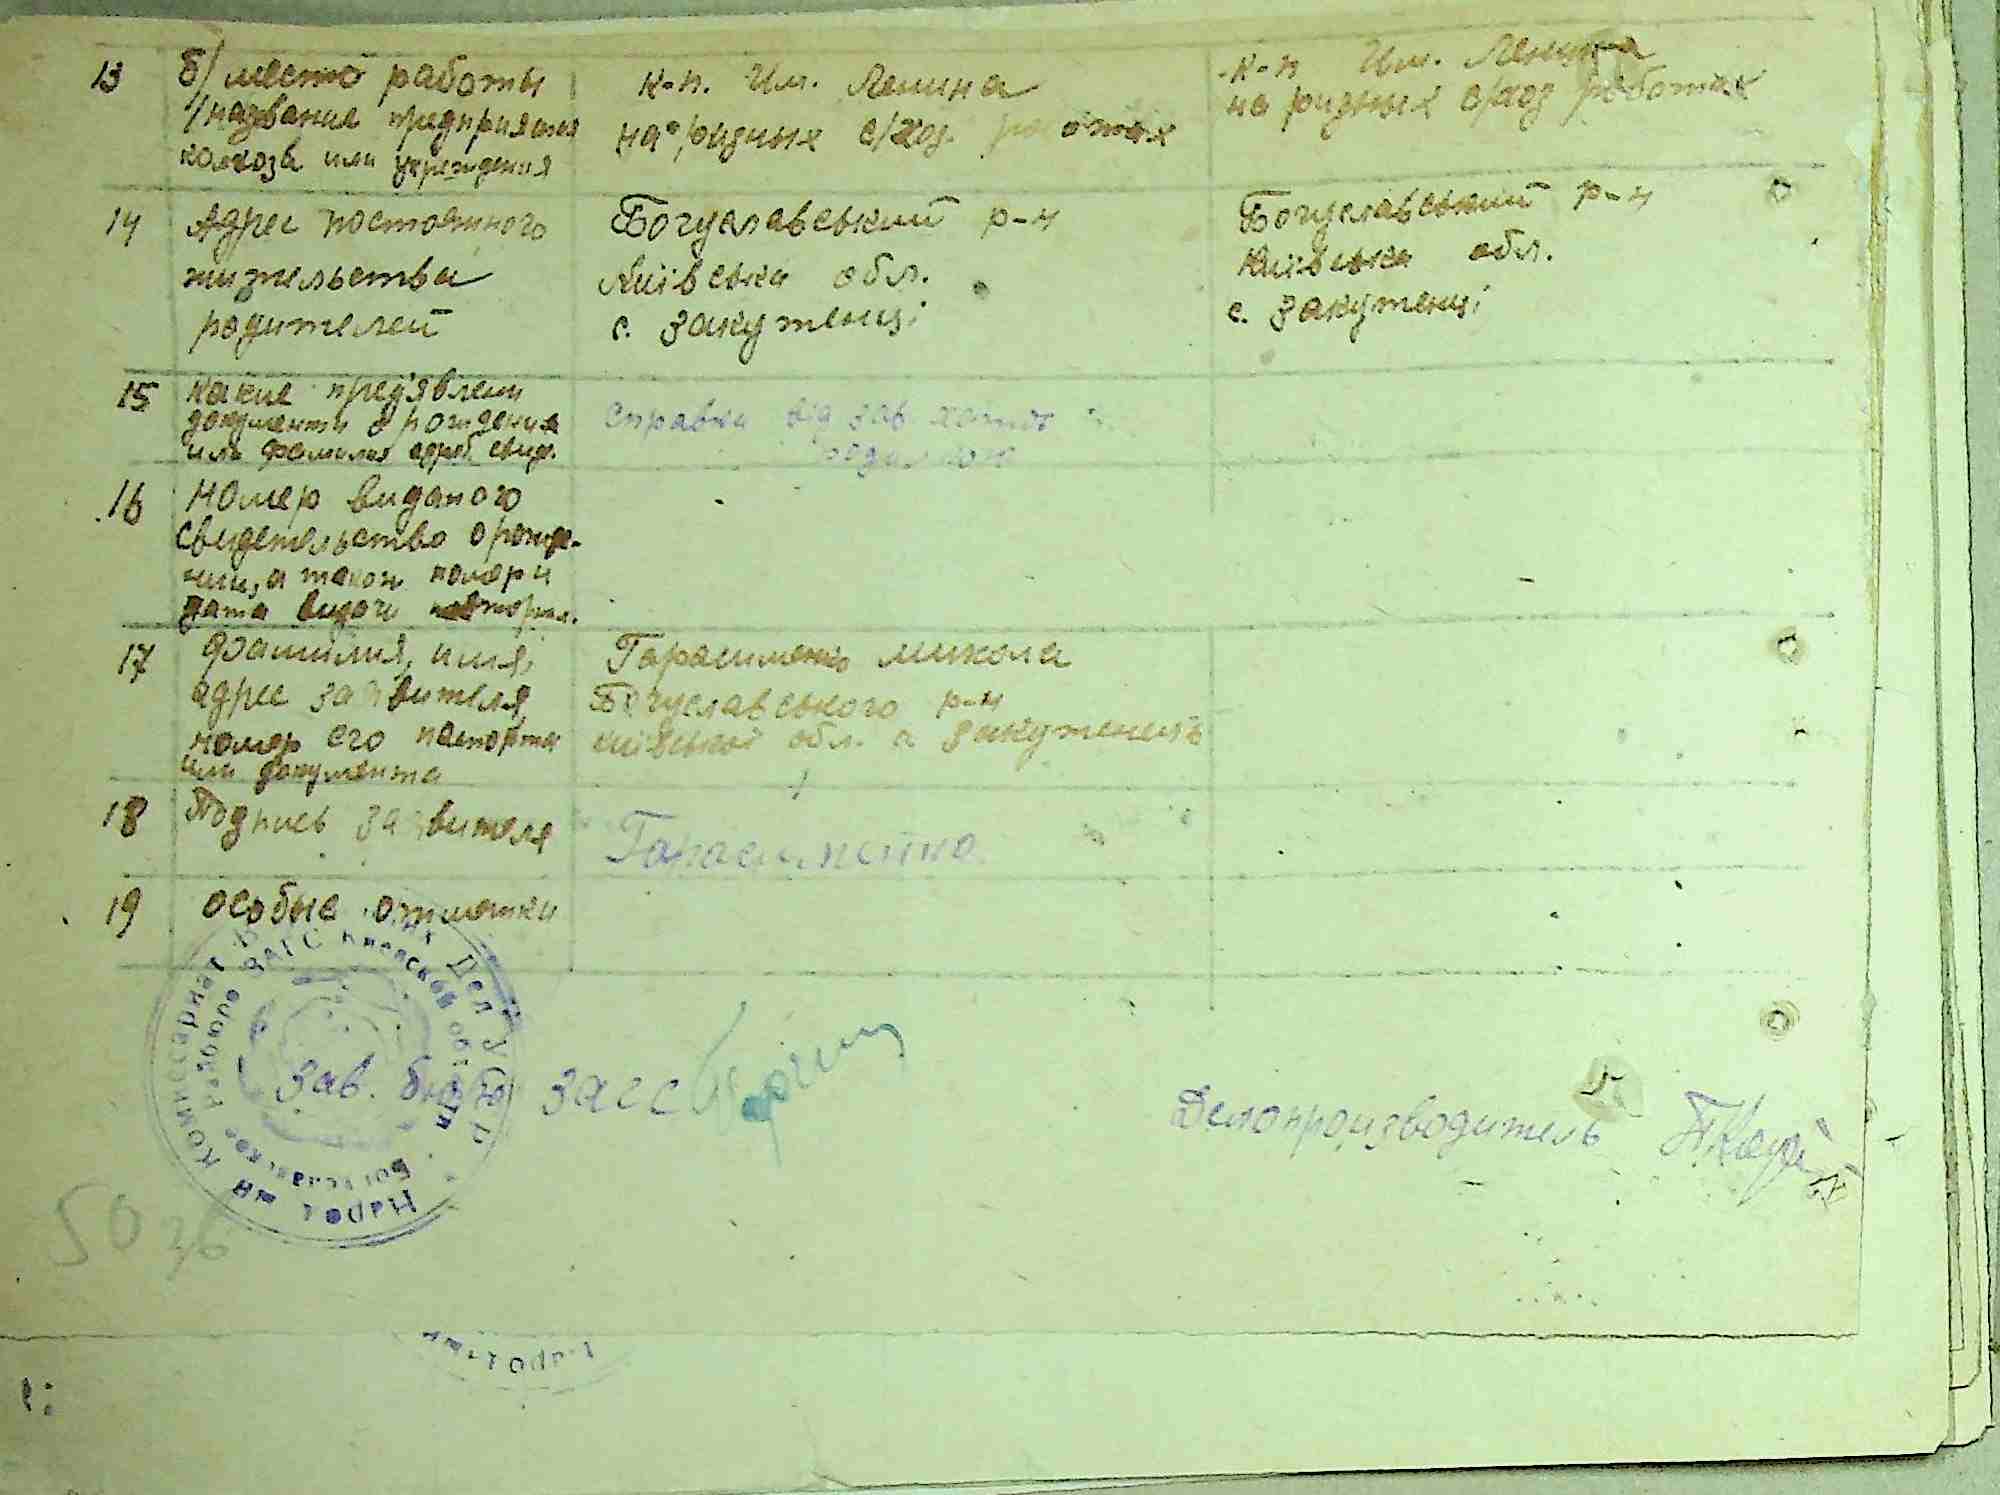 13 б/ место работы
/название предприятия
колхоза или учреждения
к-п. Им. Ленина
на різних с/хоз. роботах
к-п Им. Ленина
на ризных с/хоз роботах
14 Адрес постоянного
жительства
родителей
Богуславський р-н
Київська обл.
с. Закутенці
Богуславський р-н
Київська обл.
с. Закутенці
15 какие пред'явлени
документи о рождении
или фамилия свид.
Справка від зав.
16 Номер виданого
свидетельство о рожде-
нии, а также номер и
дата видачи повторн.
17 Фамилия, имя,
адрес заявителя,
номер его паспорта
или документа
Гарасименко Микола
Богуславського р-н
київської обл. с Закутенець
18 Подпись заявителя
Гарасименко
19 особые отметки
Народный Комиссариат Внутренних Дел У.С.С.Р.
Богуславское районное бюро ЗАГС Киевской области
Зав. бюро загс
Делопроизводитель
50